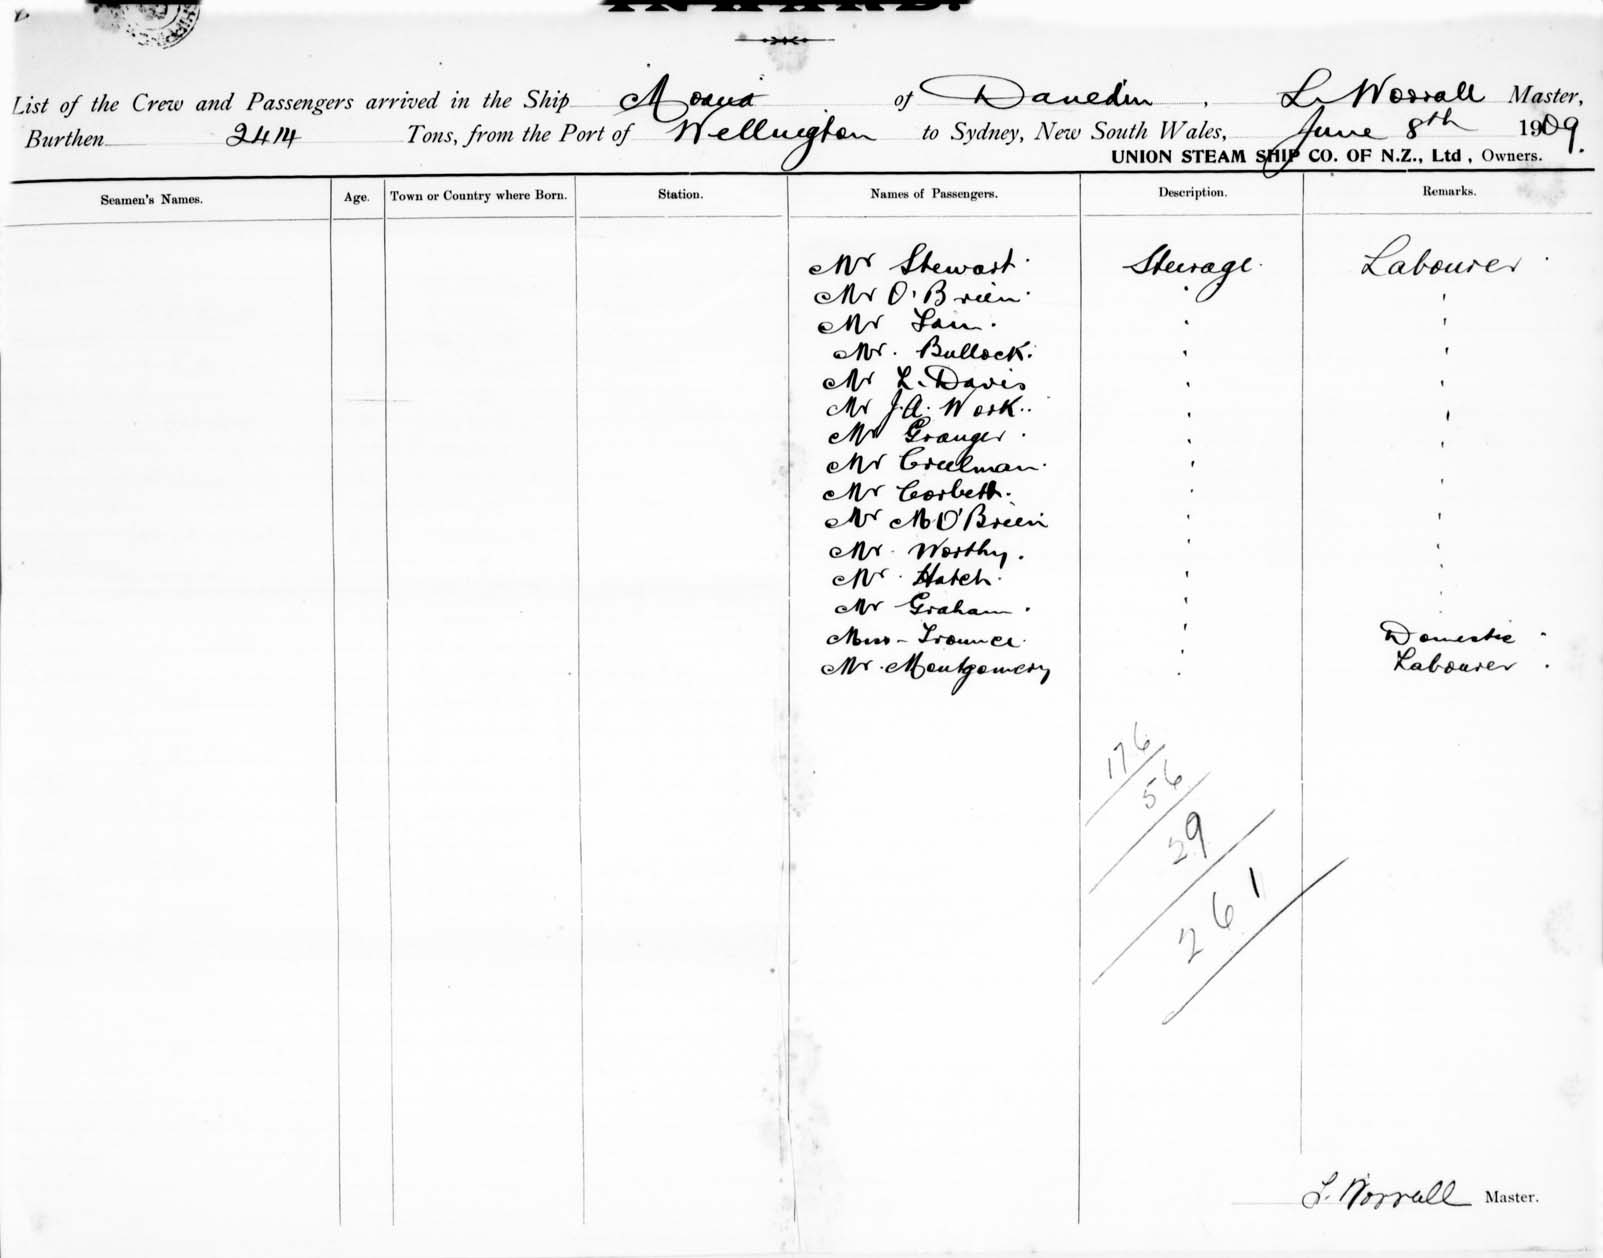 INWARD.
List of the Crew and Passengers arrived in the Ship Moana of Dunedin, L. Worrall Master,
Burthen 2414 Tons, from the Port of Wellington to Sydney, New South Wales, June 8th 1909.
UNION STEAM SHIP CO. OF N.Z., Ltd, Owners.
Seamen's Names. Age. Town or Country where Born. Station. Names of Passengers. Description. Remarks.
Mr Stewart Steerage Labourer
Mr O'Brien " "
Mr " "
Mr. Bullock " "
Mr L. Davis " "
Mr J.A. Work " "
Mr Granger " "
Mr Creelman " "
Mr Corbett " "
Mr M O'Brien " "
Mr. Worthy. " "
Mr. Hatch " "
Mr Graham " "
Miss Trounce " Domestic
Mr. Montgomery " Labourer
176
56
29
261
L. Worrall Master.